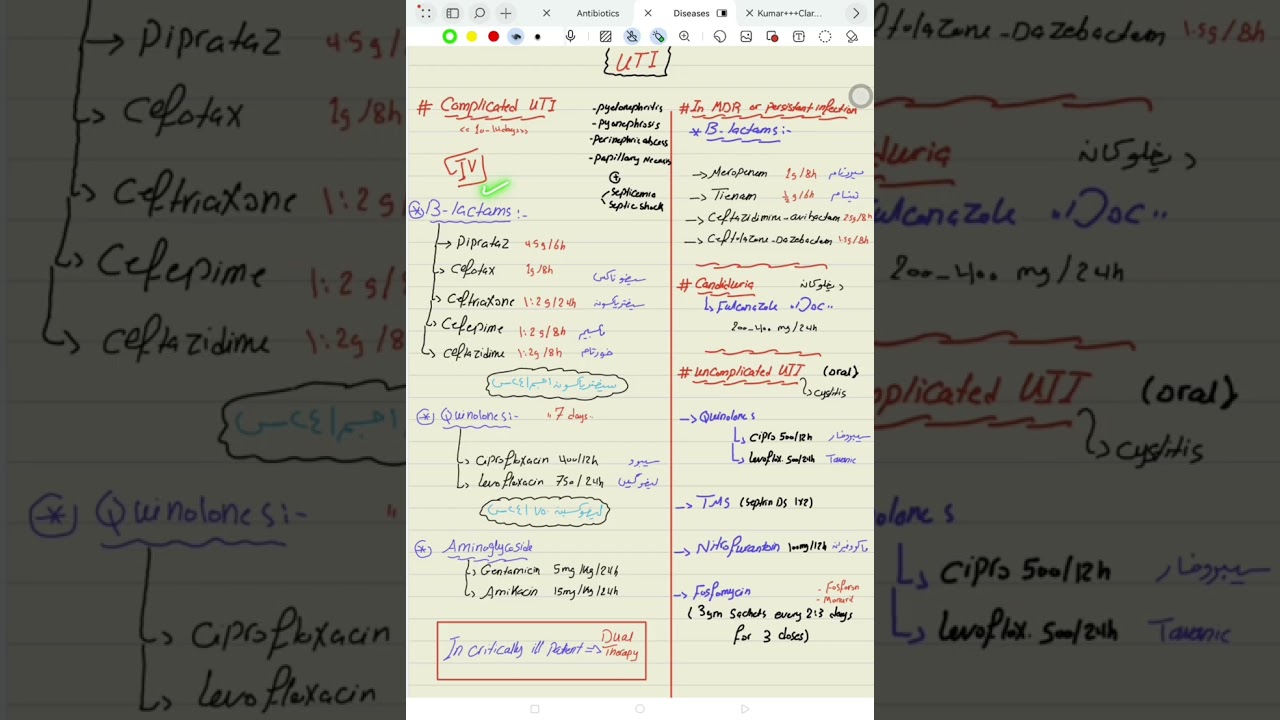 Antibiotics
Diseases
Kumar+++Clar...
UTI
# Complicated UTI
<< 10-14days>>
- pyelonephritis
- pyonephrosis
- perinephric abcess
- papillary necrosis
+
septicemia
septic shock
IV
* B-lactams:-
→ Piprataz 4.5g/6h
→ Cefotax 1g/8h
→ Ceftriaxone 1:2g/24h سيفترياكسون
→ Cefepime 1:2g/8h
→ Ceftazidime 1:2g/8h
* Quinolones:- "7 days"
→ Ciprofloxacin 400/12h
→ levofloxacin 750/24h
* Aminoglycoside
→ Gentamicin 5mg/Kg/24h
→ Amikacin 15mg/Kg/24h
In critically ill patient => Dual therapy
# In MDR or persistent infection
* B-lactams:-
→ Meropenum 1g/8h ميرونام
→ Tienam ½g/6h تينام
→ Ceftazidime-avibactam 2.5g/8h
→ Ceftolazane-Dazebactam 1.5g/8h
# Candiduria
↳ Fulconazole "DOC"
200-400 mg/24h
# uncomplicated UTI (oral)
↳ cystitis
→ Quinolones
↳ Cipro 500/12h
↳ levoflox. 500/24h Tavanic
→ TMS (Septrin DS 1x2)
→ Nitrofurantoin 100mg/12h
→ Fosfomycin
- Monuril
(3gm sachets every 2:3 days
for 3 doses)